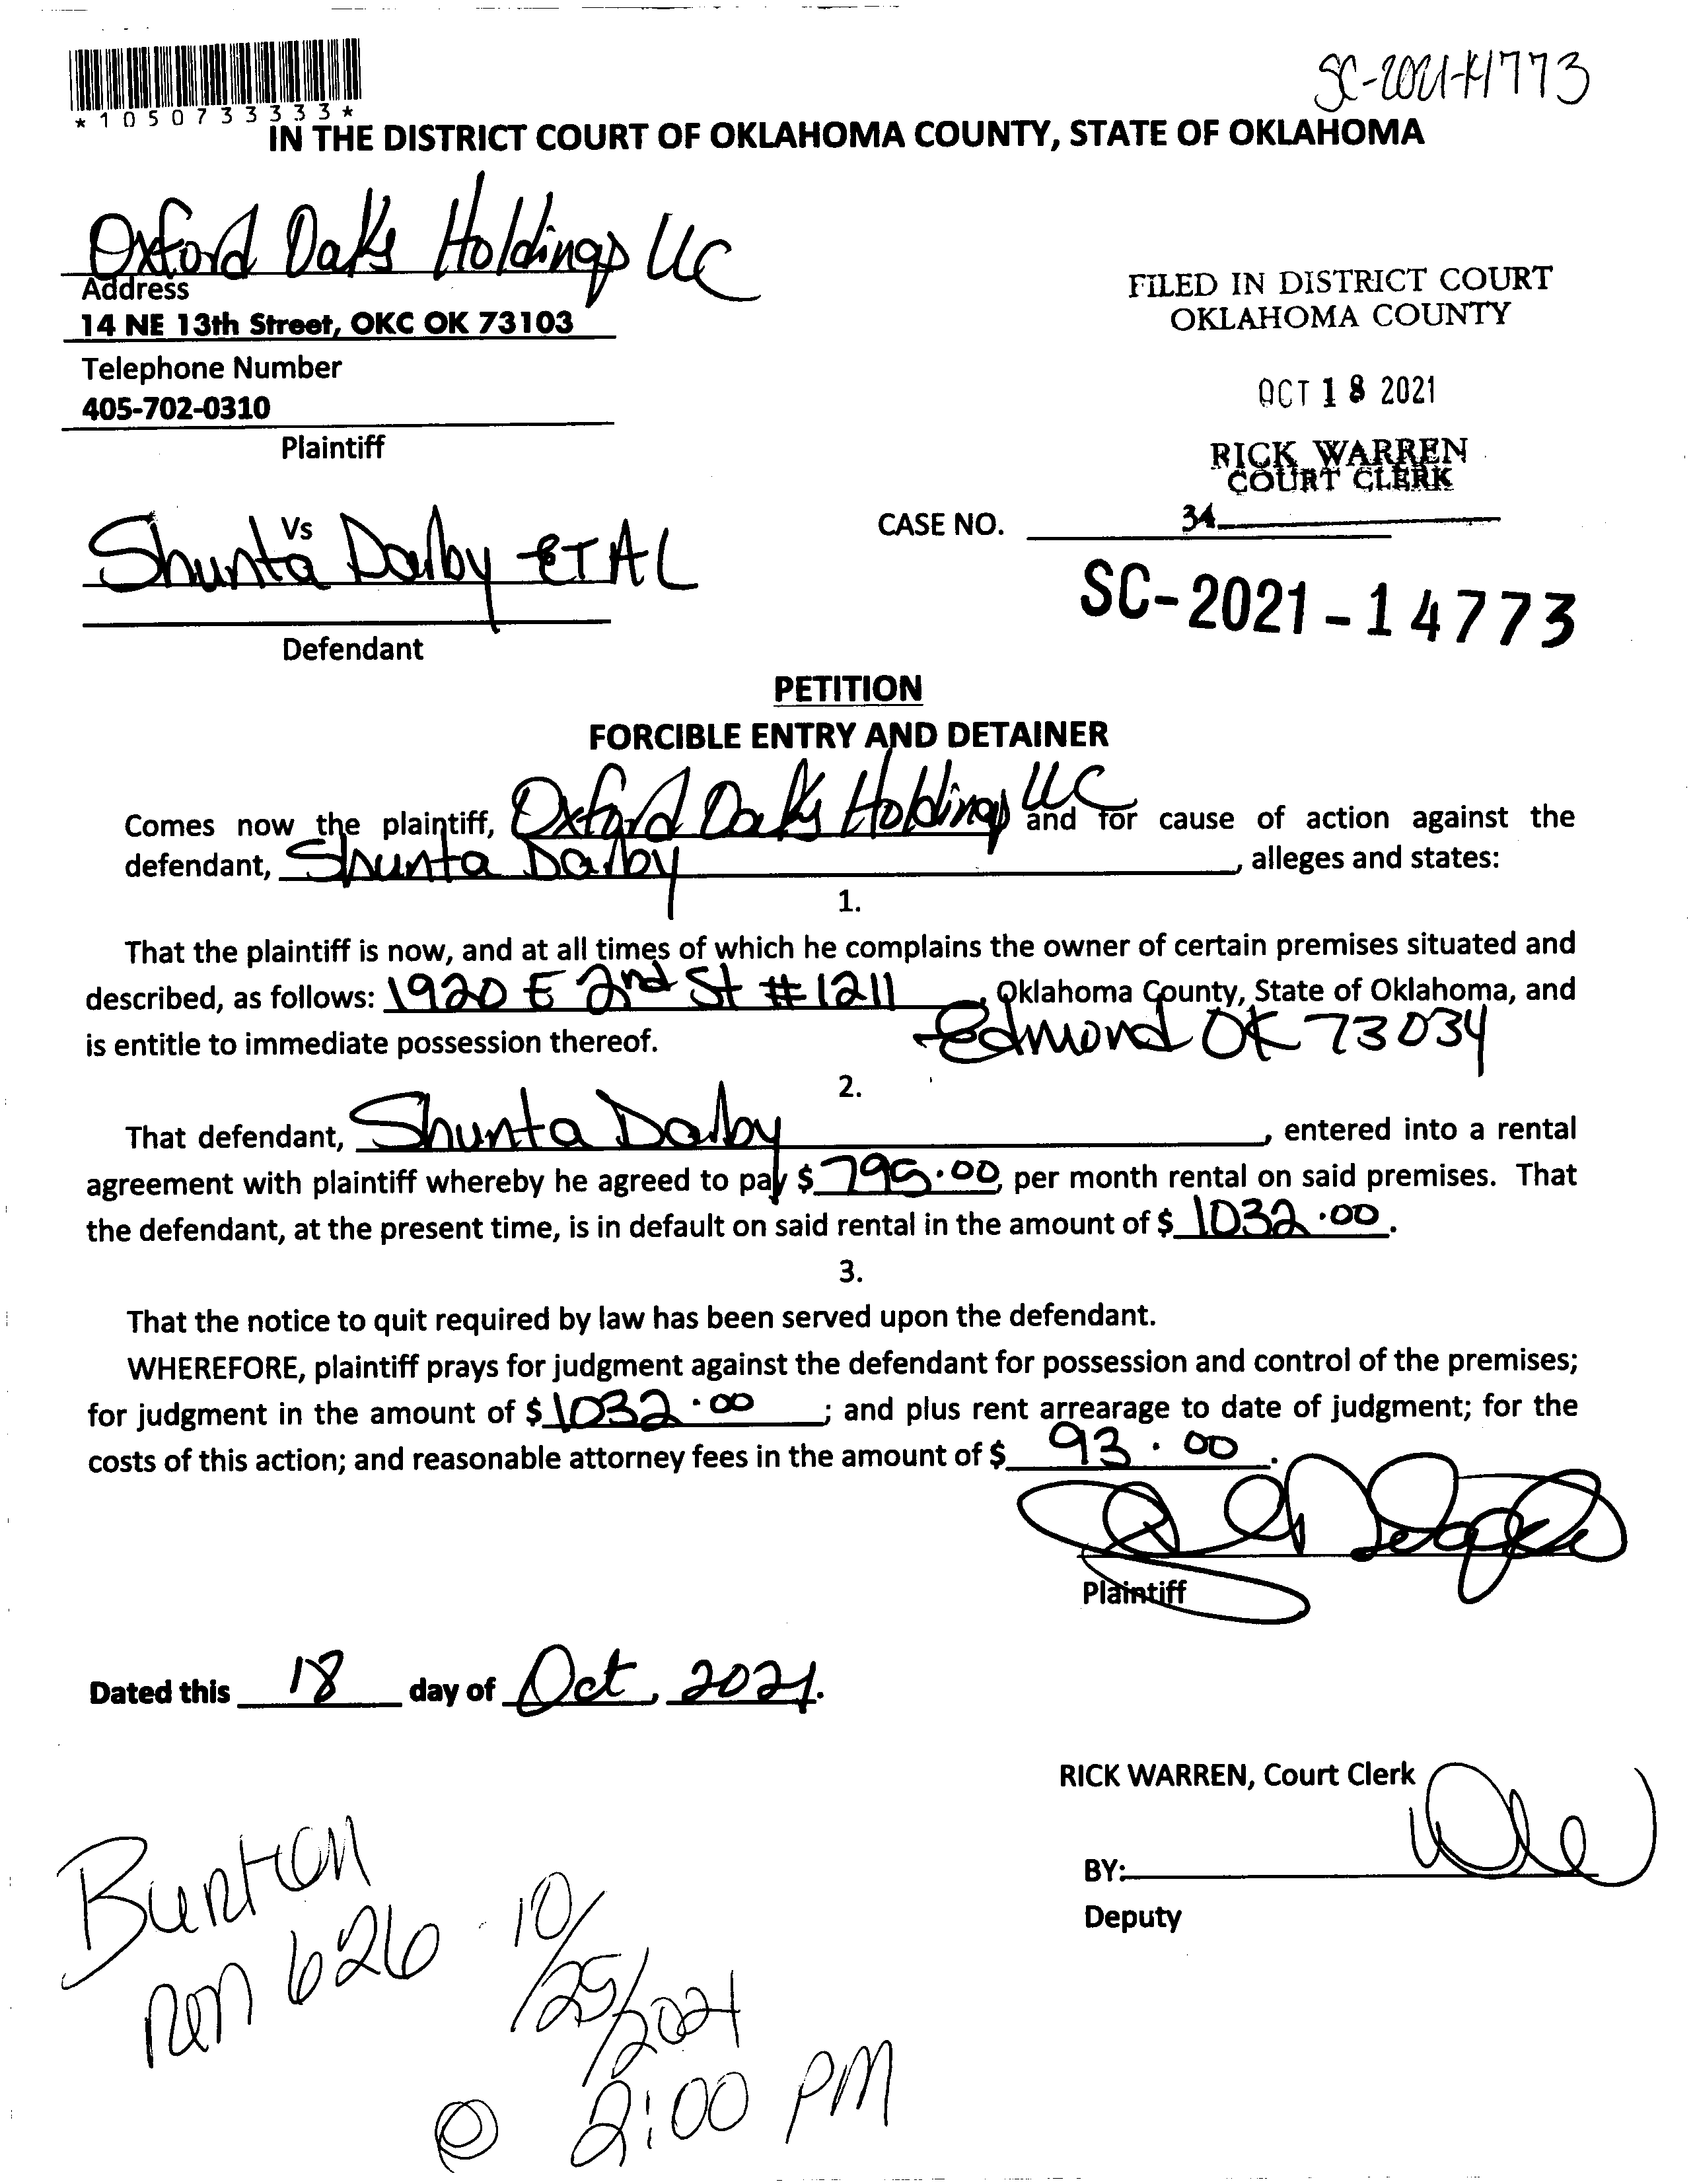 SC-2021-14773
*1050733333*
IN THE DISTRICT COURT OF OKLAHOMA COUNTY, STATE OF OKLAHOMA
Oxford Oaks Holdings LLC
Address
14 NE 13th Street, OKC OK 73103
Telephone Number
405-702-0310
Plaintiff
FILED IN DISTRICT COURT
OKLAHOMA COUNTY
OCT 18 2021
RICK WARREN
COURT CLERK
34
Vs
Shunta Darby ET AL
Defendant
CASE NO.
SC-2021-14773
PETITION
FORCIBLE ENTRY AND DETAINER
Comes now the plaintiff, Oxford Oaks Holdings LLC and for cause of action against the
defendant, Shunta Darby, alleges and states:
1.
That the plaintiff is now, and at all times of which he complains the owner of certain premises situated and
described, as follows: 1920 E 2nd St #1211, Oklahoma County, State of Oklahoma, and
Edmond OK 73034
is entitle to immediate possession thereof.
2.
That defendant, Shunta Darby, entered into a rental
agreement with plaintiff whereby he agreed to pay $ 795.00, per month rental on said premises. That
the defendant, at the present time, is in default on said rental in the amount of $ 1032.00.
3.
That the notice to quit required by law has been served upon the defendant.
WHEREFORE, plaintiff prays for judgment against the defendant for possession and control of the premises;
for judgment in the amount of $ 1032.00; and plus rent arrearage to date of judgment; for the
costs of this action; and reasonable attorney fees in the amount of $ 93.00.
Plaintiff
Dated this 18 day of Oct, 2021.
RICK WARREN, Court Clerk
BY:
Deputy
Burton
Rm 626 10/25/2021
@ 2:00 PM